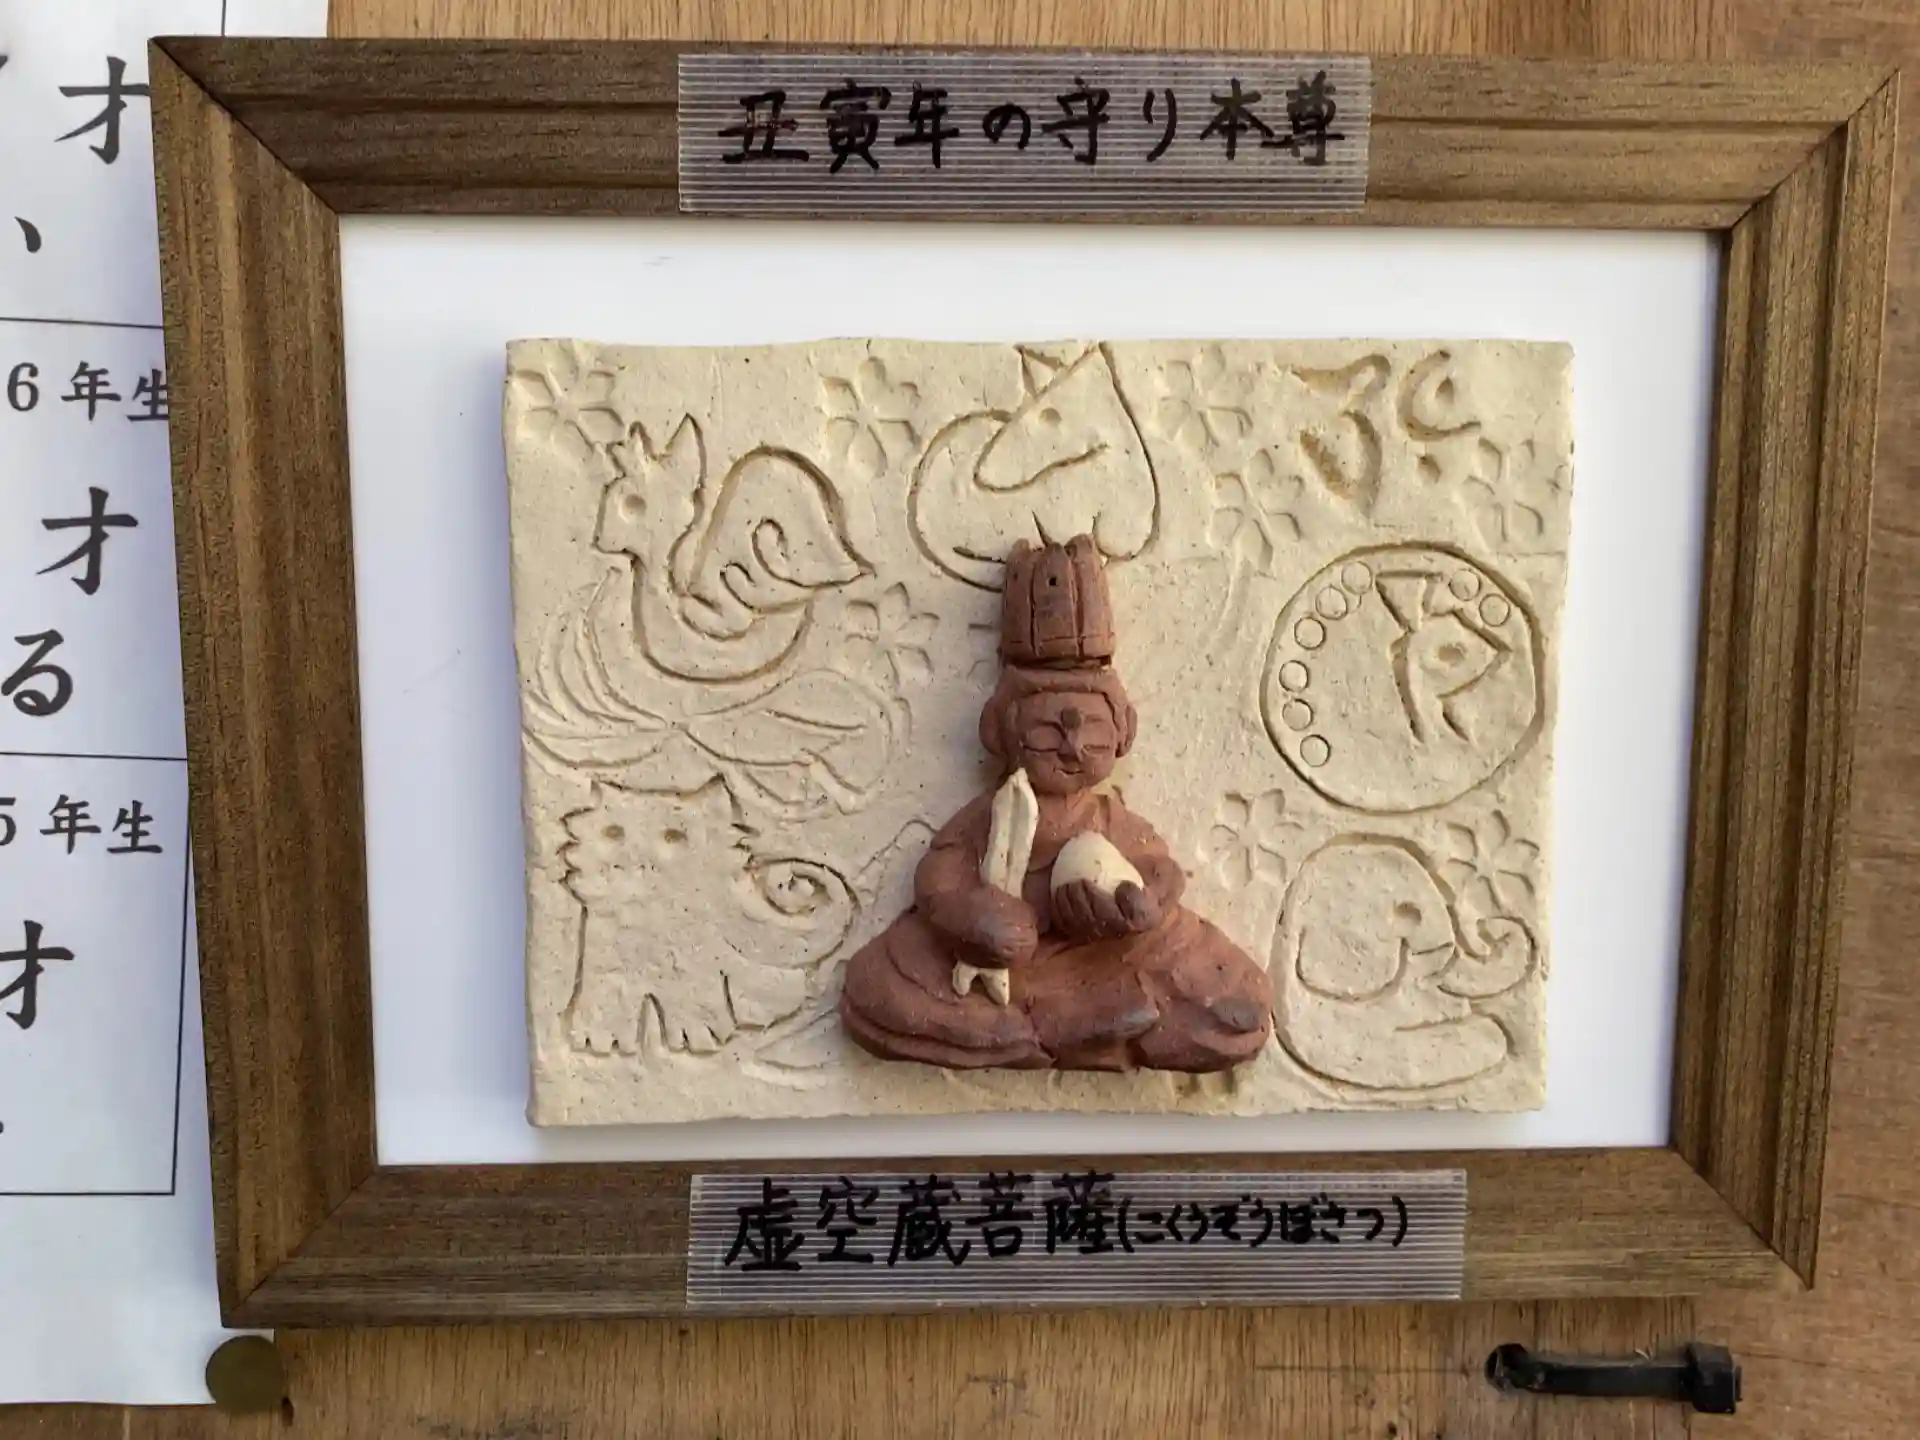 丑寅年の守り本尊
虚空蔵菩薩(こくうぞうぼさつ)
才
、
6年生
才
る
5年生
才